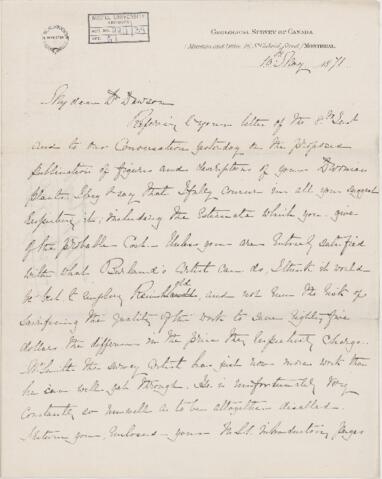 McGILL UNIVERSITY
ARCHIVES
ACC. NO.
REF.
GEOLOGICAL SURVEY OF CANADA
Museum and Office 76, St. Gabriel Street, MONTREAL
16th May 1871
My dear Dr Dawson
Referring to your letter of the 8th Inst
and to our Conversation yesterday on the proposed
publication of figures and descriptions of your Devonian
plants, I beg to say that I fully concur in all you suggest
respecting it; including the Estimate which you give
of the probable Cost. Unless you are Entirely satisfied
with what Burland's Artist can do, I think it would
be best to employ Reinhold, and not run the risk of
sacrificing the quality of the work to save Eighty five
dollars the difference in the price they respectively charge.
Mr Smith the survey Artist has just now more work than
he can well get through. He is unfortunately very
Constantly so unwell as to be altogether disabled.
I return you Enclosed your M.S.S. introductory pages